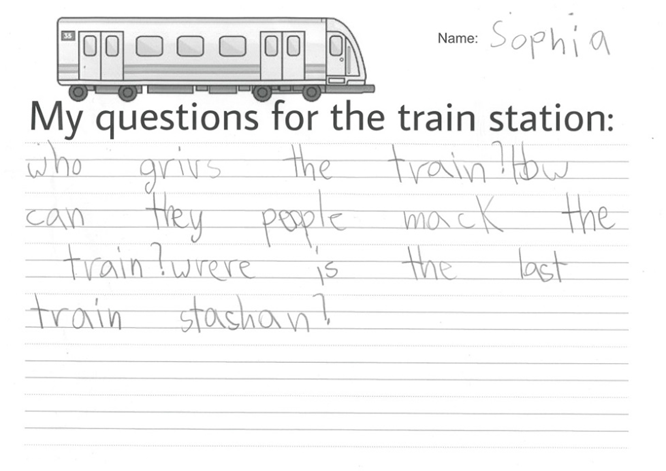 36
Name: Sophia
My questions for the train station:
who grivs the train? How
can they people mack the
train? wrere is the last
train stashan?